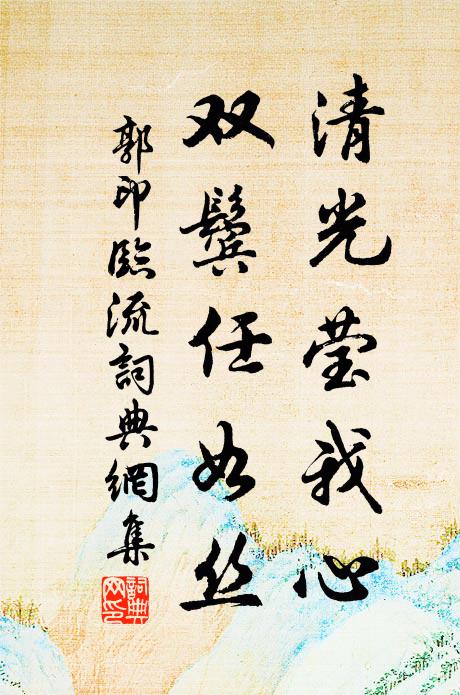 清光莹我心
双鬓任如丝
郭印臨流詞典網集
詞典网印